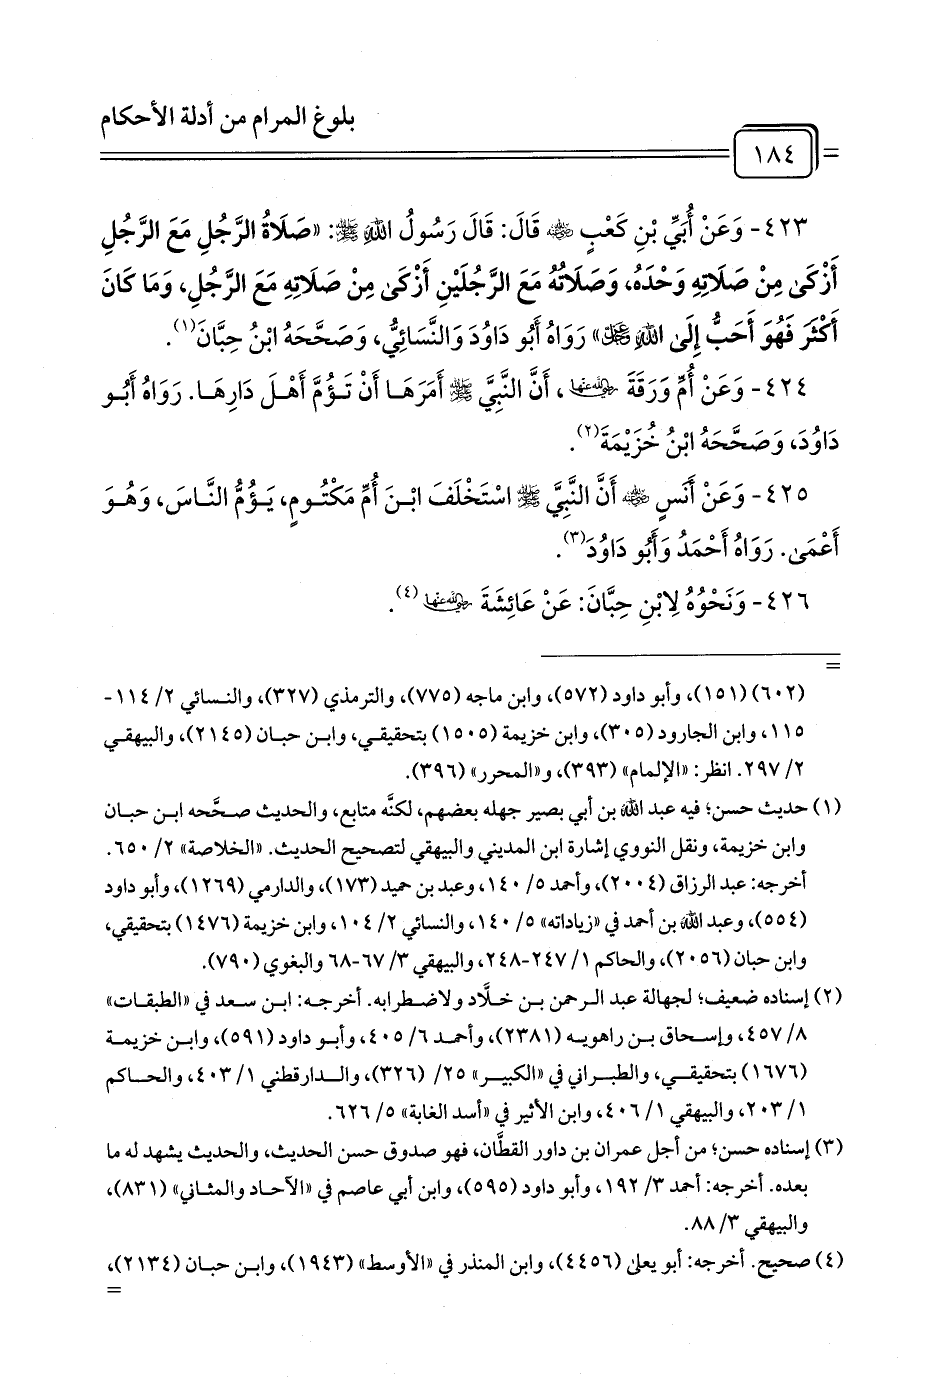 بلوغ المرام من أدلة الأحكام
١٨٤
٤٢٣- وَعَنْ أُبَيِّ بْنِ كَعْبٍ ﵁ قَالَ: قَالَ رَسُولُ اللهِ ﷺ: «صَلَاةُ الرَّجُلِ مَعَ الرَّجُلِ
أَزْكَى مِنْ صَلَاتِهِ وَحْدَهُ، وَصَلَاتُهُ مَعَ الرَّجُلَيْنِ أَزْكَى مِنْ صَلَاتِهِ مَعَ الرَّجُلِ، وَمَا كَانَ
أَكْثَرَ فَهُوَ أَحَبُّ إِلَى اللهِ ﷿» رَوَاهُ أَبُو دَاوُدَ وَالنَّسَائِيُّ، وَصَحَّحَهُ ابْنُ حِبَّانَ(١).
٤٢٤- وَعَنْ أُمِّ وَرَقَةَ ﵂، أَنَّ النَّبِيَّ ﷺ أَمَرَهَا أَنْ تَؤُمَّ أَهْلَ دَارِهَا. رَوَاهُ أَبُو
دَاوُدَ، وَصَحَّحَهُ ابْنُ خُزَيْمَةَ(٢).
٤٢٥- وَعَنْ أَنَسٍ ﵁ أَنَّ النَّبِيَّ ﷺ اسْتَخْلَفَ ابْنَ أُمِّ مَكْتُومٍ، يَؤُمُّ النَّاسَ، وَهُوَ
أَعْمَى. رَوَاهُ أَحْمَدُ وَأَبُو دَاوُدَ(٣).
٤٢٦- وَنَحْوُهُ لِابْنِ حِبَّانَ: عَنْ عَائِشَةَ ﵂ (٤).
=
(٦٠٢) (١٥١)، وأبو داود (٥٧٢)، وابن ماجه (٧٧٥)، والترمذي (٣٢٧)، والنسائي ٢/ ١١٤-
١١٥، وابن الجارود (٣٠٥)، وابن خزيمة (١٥٠٥) بتحقيقي، وابن حبان (٢١٤٥)، والبيهقي
٢/ ٢٩٧. انظر: «الإلمام» (٣٩٣)، و«المحرر» (٣٩٦).
(١) حديث حسن؛ فيه عبد الله بن أبي بصير جهله بعضهم، لكنَّه متابع، والحديث صحَّحه ابن حبان
وابن خزيمة، ونقل النووي إشارة ابن المديني والبيهقي لتصحيح الحديث. «الخلاصة» ٢/ ٦٥٠.
أخرجه: عبد الرزاق (٢٠٠٤)، وأحمد ٥/ ١٤٠، وعبد بن حميد (١٧٣)، والدارمي (١٢٦٩)، وأبو داود
(٥٥٤)، وعبد الله بن أحمد في «زياداته» ٥/ ١٤٠، والنسائي ٢/ ١٠٤، وابن خزيمة (١٤٧٦) بتحقيقي،
وابن حبان (٢٠٥٦)، والحاكم ١/ ٢٤٧-٢٤٨، والبيهقي ٣/ ٦٧-٦٨ والبغوي (٧٩٠).
(٢) إسناده ضعيف؛ لجهالة عبد الرحمن بن خلَّاد ولاضطرابه. أخرجه: ابن سعد في «الطبقات»
٨/ ٤٥٧، وإسحاق بن راهويه (٢٣٨١)، وأحمد ٦/ ٤٠٥، وأبو داود (٥٩١)، وابن خزيمة
(١٦٧٦) بتحقيقي، والطبراني في «الكبير» ٢٥/ (٣٢٦)، والدارقطني ١/ ٤٠٣، والحاكم
١/ ٢٠٣، والبيهقي ١/ ٤٠٦، وابن الأثير في «أسد الغابة» ٥/ ٦٢٦.
(٣) إسناده حسن؛ من أجل عمران بن داور القطَّان، فهو صدوق حسن الحديث، والحديث يشهد له ما
بعده. أخرجه: أحمد ٣/ ١٩٢، وأبو داود (٥٩٥)، وابن أبي عاصم في «الآحاد والمثاني» (٨٣١)،
والبيهقي ٣/ ٨٨.
(٤) صحيح. أخرجه: أبو يعلى (٤٤٥٦)، وابن المنذر في «الأوسط» (١٩٤٣)، وابن حبان (٢١٣٤)،
=